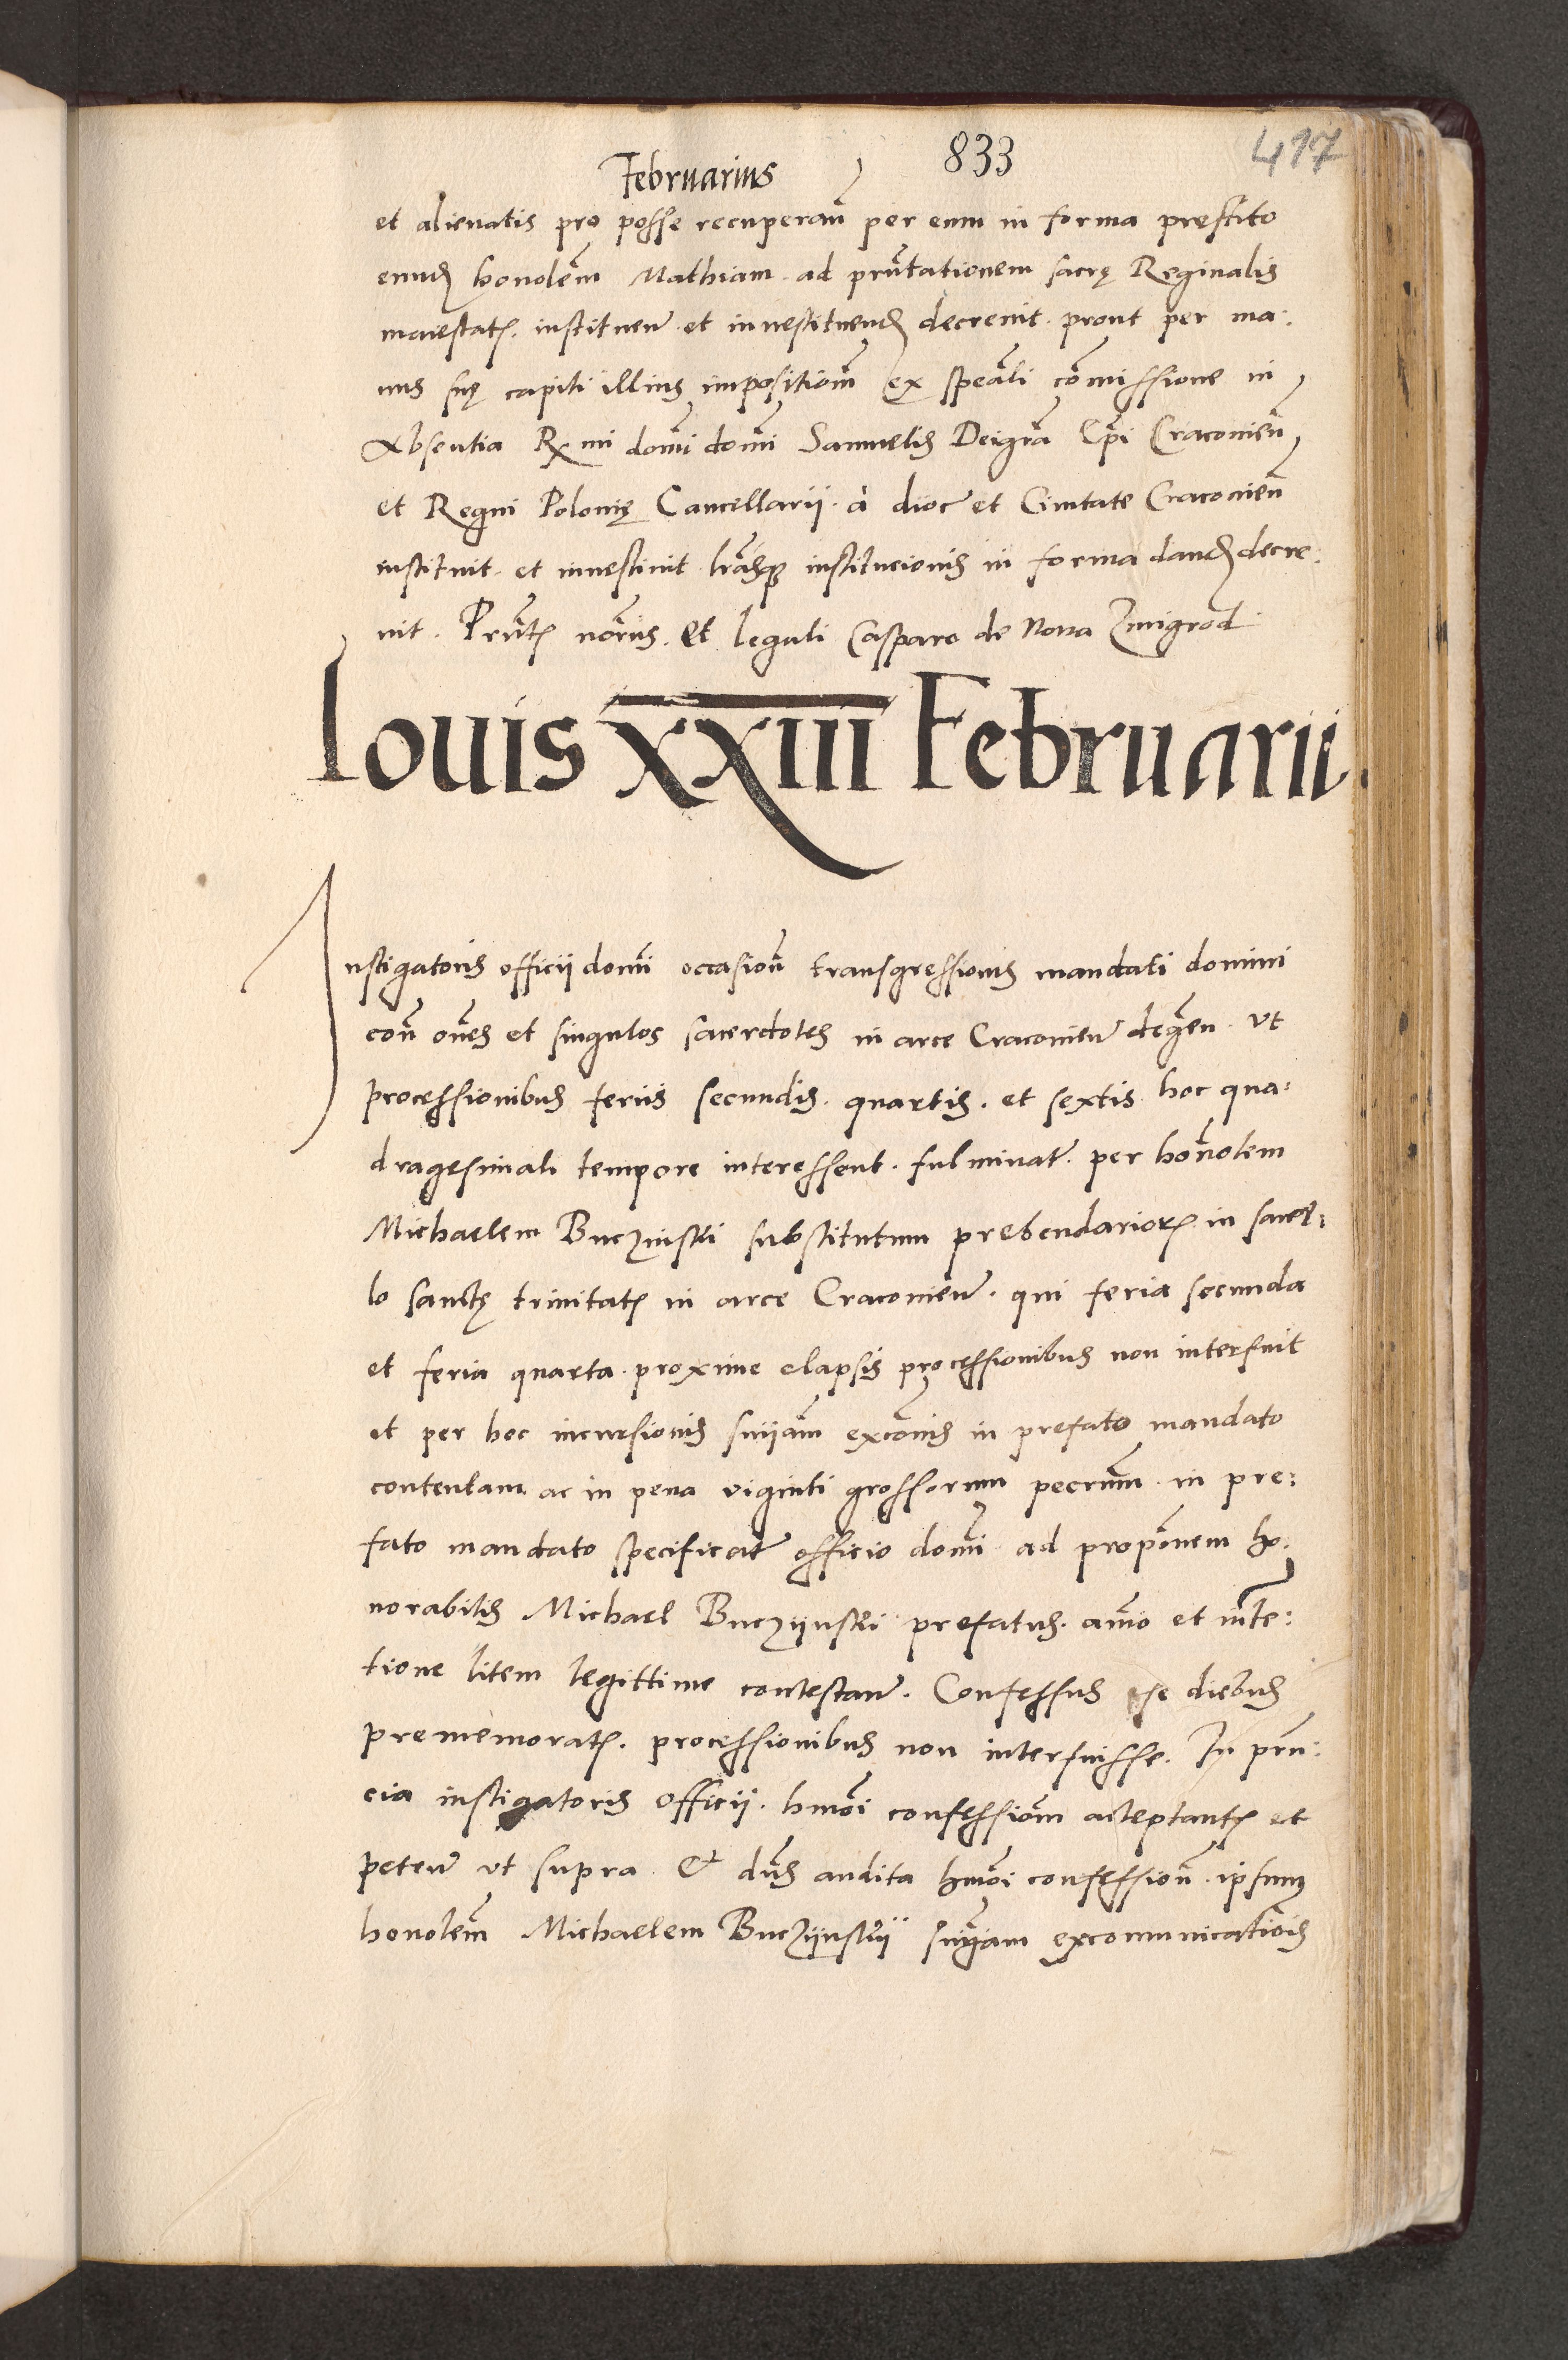 833
417
Februarius
et alienatis pro posse recuperan̄ per eum in forma prestito
eundē honolem̄ Mathiam ad pn̄tationem sacrę Reginalis
maiestatꝭ. instituen̄ et inuestituendꝭ decreuit. prout per ma:
nus suę capiti illius impositiom̄ ex speāli cōmissione in
Absentia Rmi domī domī Samuelis Dei grā Ep̄i Cracouien̄
et Regni Polonię Cancellarii. a dioc et Ciuitate Cracouien̄
instituit. et inuestiuit. lrāsqꝫ institucionis in forma dandꝭ decre:
uit. Pn̄tꝭ Et leguli Casparo de Noua Zmigrod
Iouis XXIII Februarii.
Instigatoris officii domī occasion̄ transgressionis mandati domini
con̄ om̄es et singulos sacerdotes in arce Cracouien̄ degen̄. vt
processionibus feriis secundis. quartis. et sextis. hoc qua:
dragesimali tempore interessent. fulminat̄. per hon̄olem
Michaelem Buczinskı substitutum prebendariorꝭ in sacel:
lo sanctę trinitatꝭ in arce Cracouien̄. qui feria secunda
et feria quarta. proxime elapsis processionibus non interfuit
et per hoc incursionis sn̄iam excōnis in prefato mandato
contentam ac in pena viginti grossorum pecun̄. in pre:
fato mandato specificat̄ officio domī ad propōnem ho:
norabilis Michael Buczÿnski prefatus. animo et inte:
tione litem legittime contestan̄. Confessus se diebus
prememoratꝭ. processionibus non interfuisse. In prn̄:
cia instigatoris officii. hm̄oi confessiom̄ acceptantꝭ et
peten̄ vt supra. Et dn̄s audita hm̄oi confession̄. ipsum
honolem̄ Michaelem Buczÿnskÿ sn̄iam excomunicatiōis